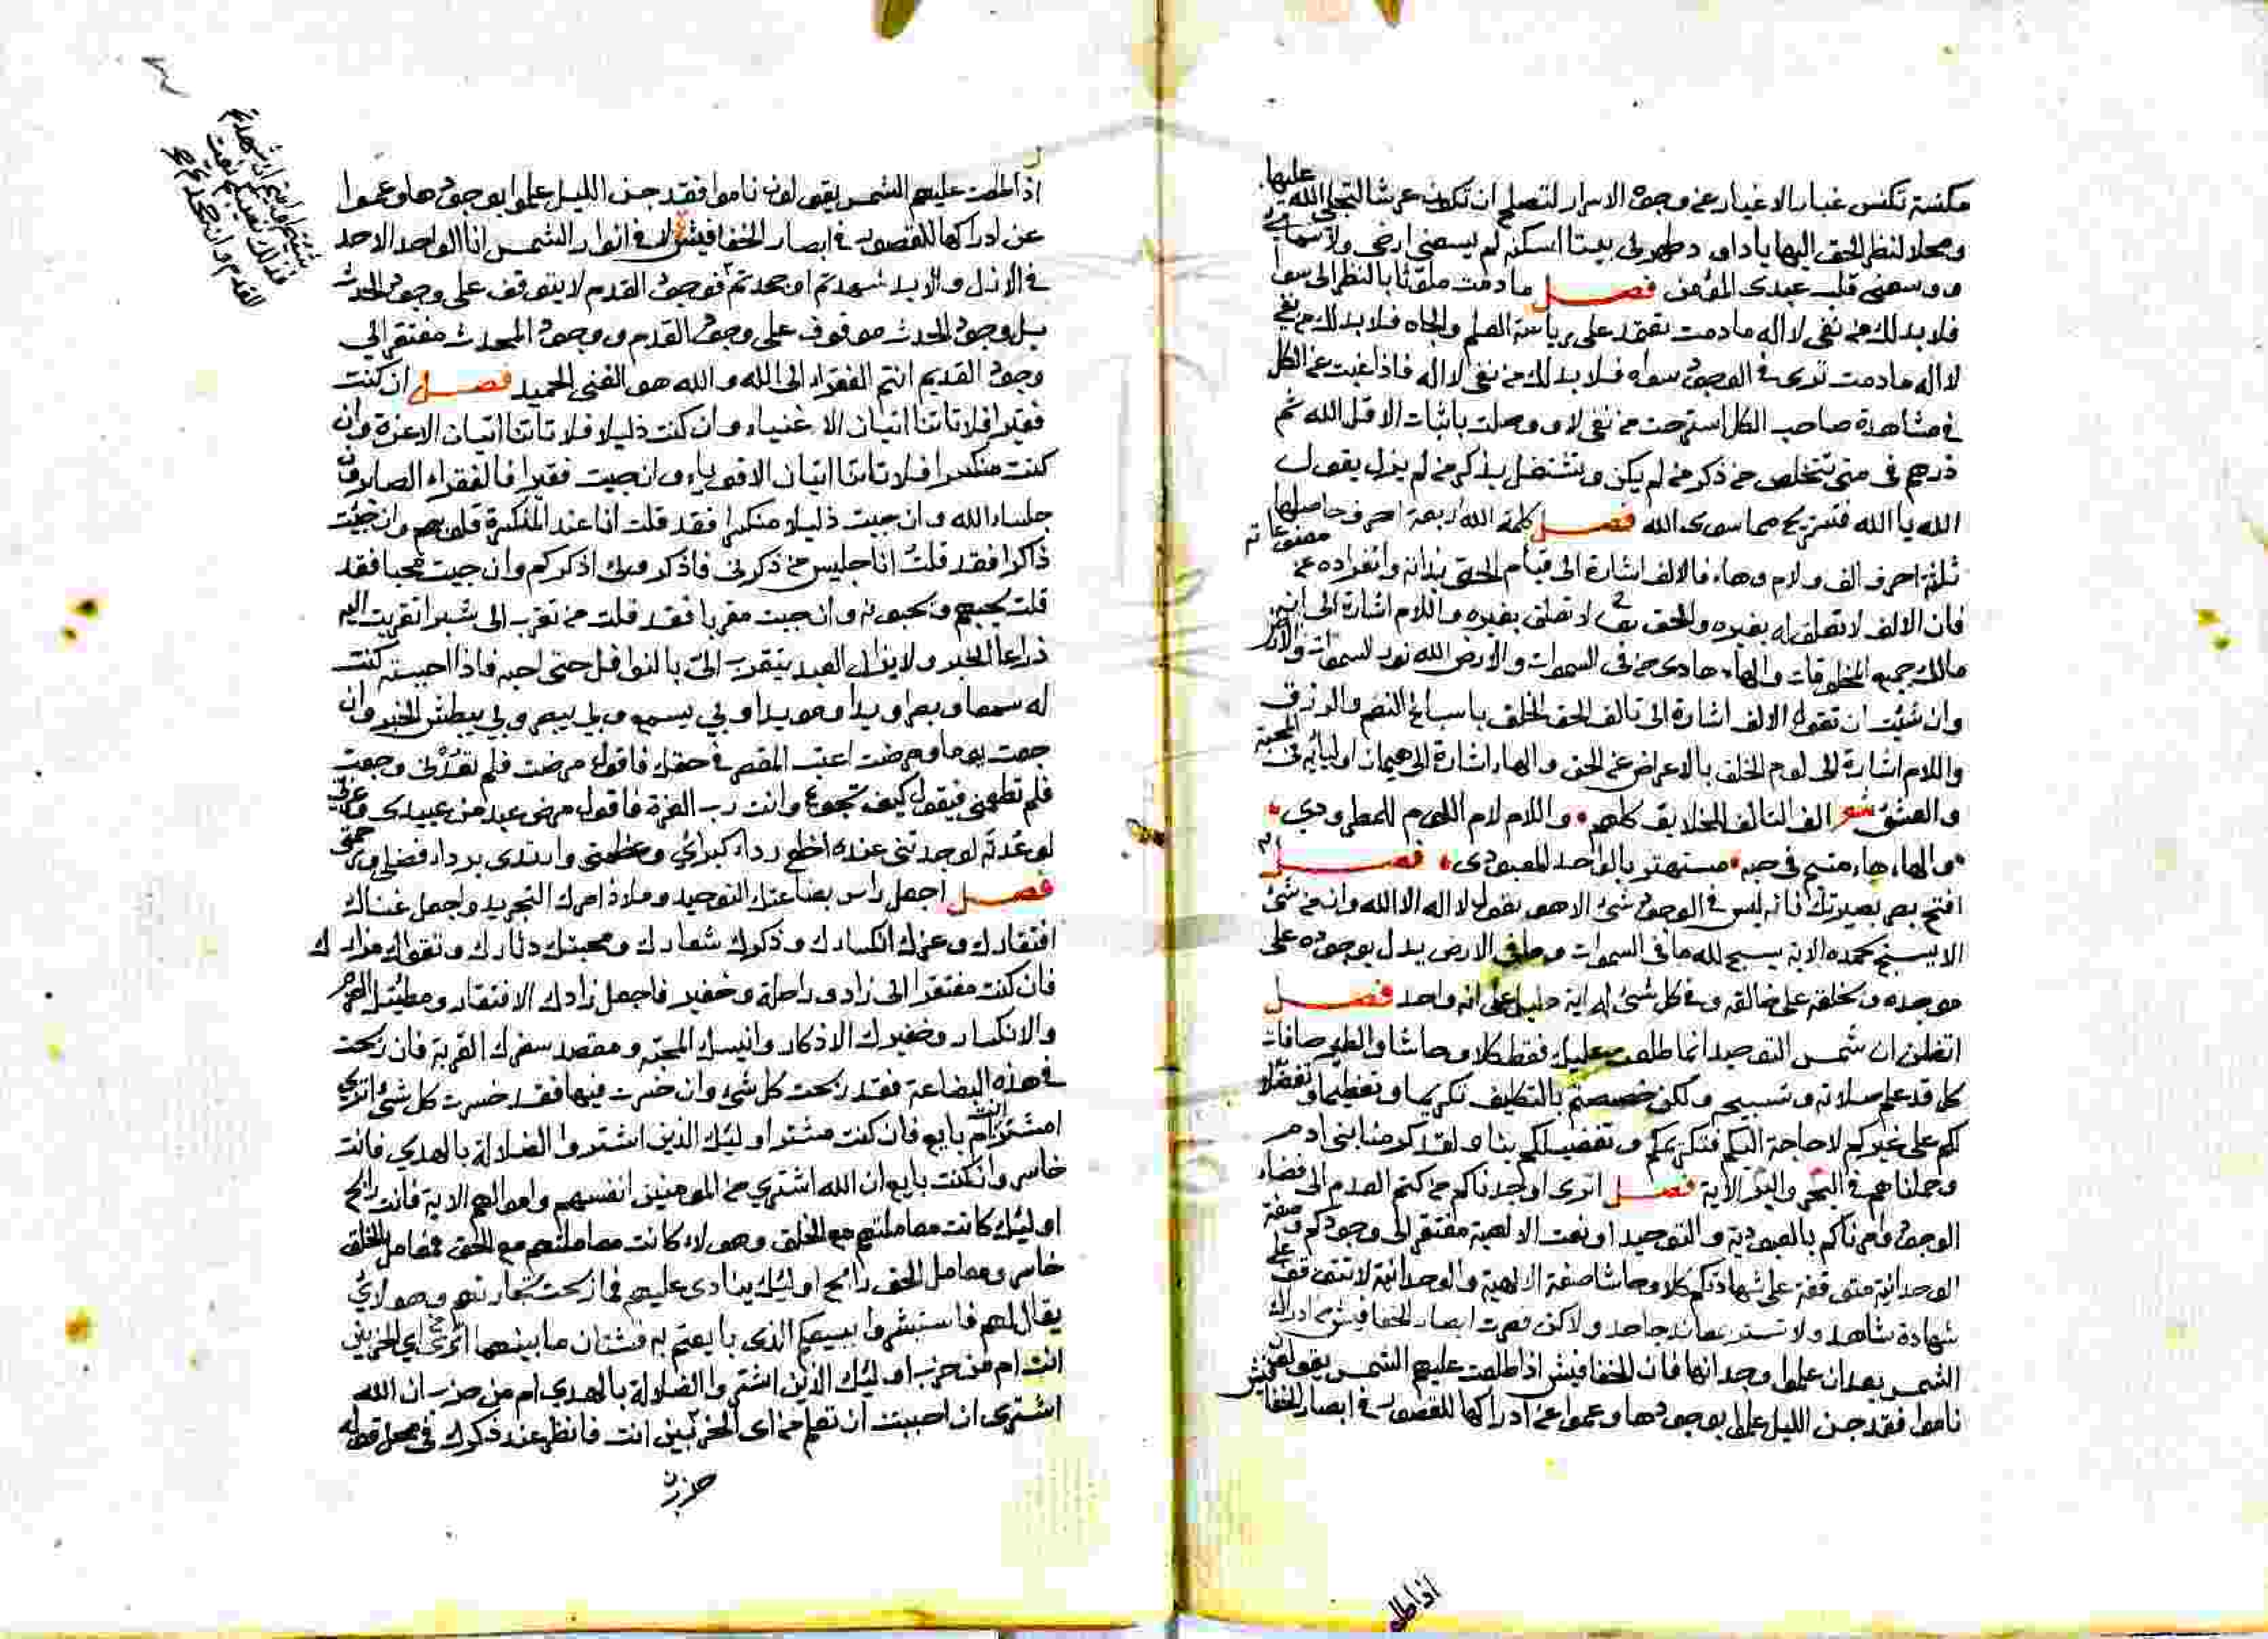 مكنسة تكنس غبار الاغيار عن وجوه الاسرار لتصلح ان تكون عرشا لتجلى الله عليها
ومحلا لنظر الحق اليها ياداود طهر لى بيتا اسكنه لم يسعنى ارضى ولا سمائى
ووسعنى قلب عبدى المؤمن فصل ما دمت ملوثا بالنظر الى سوا
فلا بد لك من نفى لا اله ما دمت تعتمد على رياسة العلم والجاه فلا بد لك من نفى
لا اله ما دمت ترى فى الوجود سواه فلا بد لك من نفى لا اله فاذا غبت عن الكل
فى مشاهدة صاحب الكل استرحت من نفى لا ووصلت باثبات الا قل الله ثم
ذرهم فى متى تتخلص من ذكر من لم يكن وتشتغل بذكر من لم يزل يقول
الله يا الله فتستريح مما سوى الله فصل كلمة الله اربعة احرف حاصلها
ثلثة احرف الف ولام وهاء فالالف اشارة الى قيام الحق بذاته وانفراده عن مصنوعاته
فان الالف لا تعلق له بغيره والحق تعالى لا تعلق بغيره واللام اشارة الى انه
مالك جميع المخلوقات والهاء هادى من فى السموات والارض الله نور السموات والارض
وان شئت ان تقول الالف اشارة الى تالف الحق الخلق باسباغ النعم والرزق
واللام اشارة الى لوم الخلق بالاعراض عن الحق والهاء اشارة الى هيمان اوليائه فى المحبة
والعشق شعر الف التالف للخلايق كلهم واللام لام اللوم للمطرودي
والهاء هاء متيم فى حبه مستهتر بالواحد المعبودى فصل
افتح بصر بصيرتك فانه ليس فى الوجود شئ الا هو يقول لا اله الا الله وان من شئ
الا يسبح بحمده الاية يسبح لله ما فى السموات وما فى الارض يدل بوجوده على
موجده وبخلقه على خالقه وفى كل شئ له اية دليل على انه واحد فصل
اتظن ان شمس التوحيد انما طلعت عليك فقط كلا وحاشا والطير صافات
كل قد علم صلاته وتسبيحه ولكن خصصتم بالتكليف تكريما وتعظيما وتفضلا
لكم على غيركم لا حاجة اليكم فتكريمكم وتفضيلكم بنا ولقد كرمنا بنى ادم
وحملناهم فى البحر والبر الاية فصل اترى اوجدناكم من كتم العدم الى فضاء
الوجود وامرناكم بالعبودية والتوحيد او نعت الالهية مفتقر الى وجودكم وصفة
الوحدانية متوقفة على شهادتكم كلا وحاشا صفة الالهية والوحدانية لا تتوقف على
شهادة شاهد ولا تستر بعناد جاحد ولاكن قصرت ابصار الخفافيش ادراك
الشمس بعد ان علموا وجدانها فان الخفافيش اذا طلعت عليهم الشمس يقولون
ناموا فقد جن الليل علموا بوجودها وعموا عن ادراكها للقصور فى ابصار الخفافيش
اذا طلعت
اذا طلعت عليهم الشمس يقولون ناموا فقد جن الليل علموا بوجودها وعموا
عن ادراكها للقصور فى ابصار الخفافيش لا فى انوار الشمس انا الواحد الاحد
فى الازل والابد شهدتم او جحدتم فوجود القدم لا يتوقف على وجود الحدث
بل وجود الحدث موقوف على وجود القدم ووجود المحدث مفتقر الى
وجود القديم انتم الفقراء الى الله والله هو الغنى الحميد فصل ان كنت
فقيرا فلا تاتنا اتيان الاغنياء وان كنت ذليلا فلا تاتنا اتيان الاعزة وان
كنت منكسرا فلا تاتنا اتيان الاقوياء وان جيت فقيرا فالفقراء الصابرون
جلساء الله وان جيت ذليلا منكسرا فقد قلت انا عند المنكسرة قلوبهم وان جئت
ذاكرا فقد قلت انا جليس من ذكرنى فاذكرونى اذكركم وان جيت محبا فقد
قلت يحبهم ويحبونه وان جيت مقربا فقد قلت من تقرب الى شبرا تقربت اليه
ذراعا الخبر ولا يزال العبد يتقرب الى بالنوافل حتى احبه فاذا احببته كنت
له سمعا وبصرا ويدا ومويدا وبي يسمع وبى يبصر وبى يبطش الخبر وان
جعت يوما ومرضت اعتب المقصر فى حقك فاقول مرضت فلم تعدنى وجعت
فلم تطعمنى فيقول كيف تجوع وانت رب العزة فاقول مرض عبد من عبيدى وعزتى
لو عدته لوجدتنى عنده اخلع رداء كبرائي وعظمتى وارتدى برداء فضلى ورحمتى
فصل اجعل راس بضاعتك التوحيد وملاذ امرك التجريد واجعل غناك
افتقارك وعزك انكسارك وذكرك شعارك ومحبتك دثارك وتقواك مزارك
فان كنت مفتقرا الى زاد وراحلة وخفير فاجعل زادك الافتقار ومطيتك العجز
والانكسار وخفيرك الاذكار وانيسك المحبة ومقصد سفرك القربة فان ربحت
فى هذه البضاعة فقد ربحت كل شئ وان خسرت فيها فقد خسرت كل شئ اترى
امشتر انت ام بايع فان كنت مشتر اوليك الذين اشتروا الضلالة بالهدي فانت
خاسر وان كنت بايع ان الله اشتري من المومنين انفسهم واموالهم الاية فانت رابح
اوليك كانت معاملتهم مع الخلق وهولاء كانت معاملتهم مع الحق فمعامل الخلق
خاسر ومعامل الحق رابح اوليك ينادى عليهم فما ربحت تجارتهم وهولاي
يقال لهم فاستبشروا ببيعكم الذى بايعتم به فشتان ما بينهما اترى اي الحزبين
انت ام من حزب اوليك الذين اشتروا الضلالة بالهدي ام من حزب ان الله
اشترى ان احببت ان تعلم من اى الحزبين انت فانظر عند ذكرك فى محل قوله